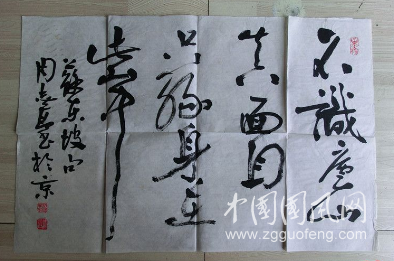 不識廬山
真面目
只緣身在
此山中
蘇東坡句
周志高書於京
中国国风网
www.zgguofeng.com